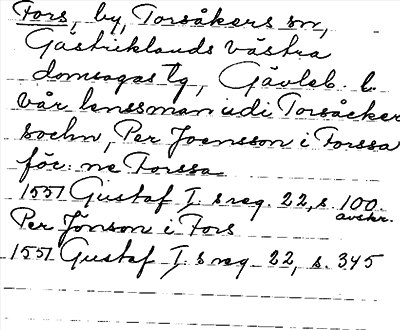 Fors, by, Torsåkers sn,
Gästriklands västra
domsagas tg, Gävleb. l.
vår lenssman udi Torsåcker
sochn, Per Joensson i Forssa
för: ne Forssa
1551 Gustaf I. s reg. 22, s. 100.
avskr.
Per Jönson i Fors
1551 Gustaf I. s reg. 22, s. 345